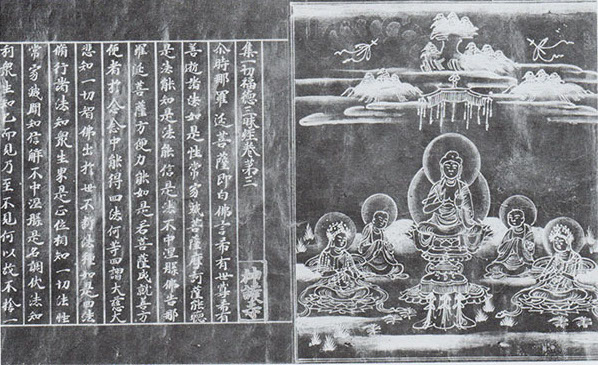 集一切福德三昧經卷第三
尒時那羅延菩薩即白佛言希有世尊希有
善逝諸法如是性常寂滅菩薩摩訶薩能聽
是法能如是法能信是法不中涅槃佛告那
羅延菩薩方便力能如是若菩薩成就善方
便者於念念中能得四法何等四謂大慈大
悲知一切智佛出於世不斷法種如是四法
脩行諸法知衆生界是正位相知一切法性
常寂滅開如信解不中涅槃是名調伏法知
利衆生知已而見乃至不見何以故不捨一
神護寺